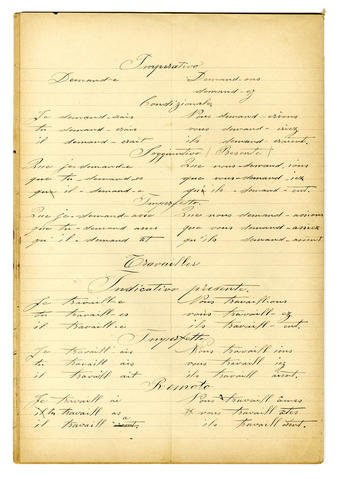 Imperativo
Demand-e Demand-ons
demand-ez
Condizionale
Je demand-erais Nous demand-erions
tu demand-erais vous demand-eriez
il demand-erait ils demand-eraient
Soggiuntivo (Presente)
Que je-demand-e Que nous-demand-ions
que tu-demand-es que vous-demand-iez
qu' il-demand-e qu' ils-demand-ent.
Imperfetto
Que je-demand-asse Que nous demand-assions
que tu-demand-asses que vous-demand-assiez
qu' il-demand ât qu'ils demand-assent
Travailler
Indicativo presente.
Je travaill-e Nous travaill-ons
tu travaill-es vous travaill-ez
il travaill-e ils travaill-ent.
Imperfetto
Je travaill ais Nous travaill ions
tu travaill ais vous travaill iez
il travaill ait ils travaill aient.
Remoto
Je travaill ai Nous travaill âmes
tu travaill as vous travaill âtes
il travaill a ils travaill èrent.